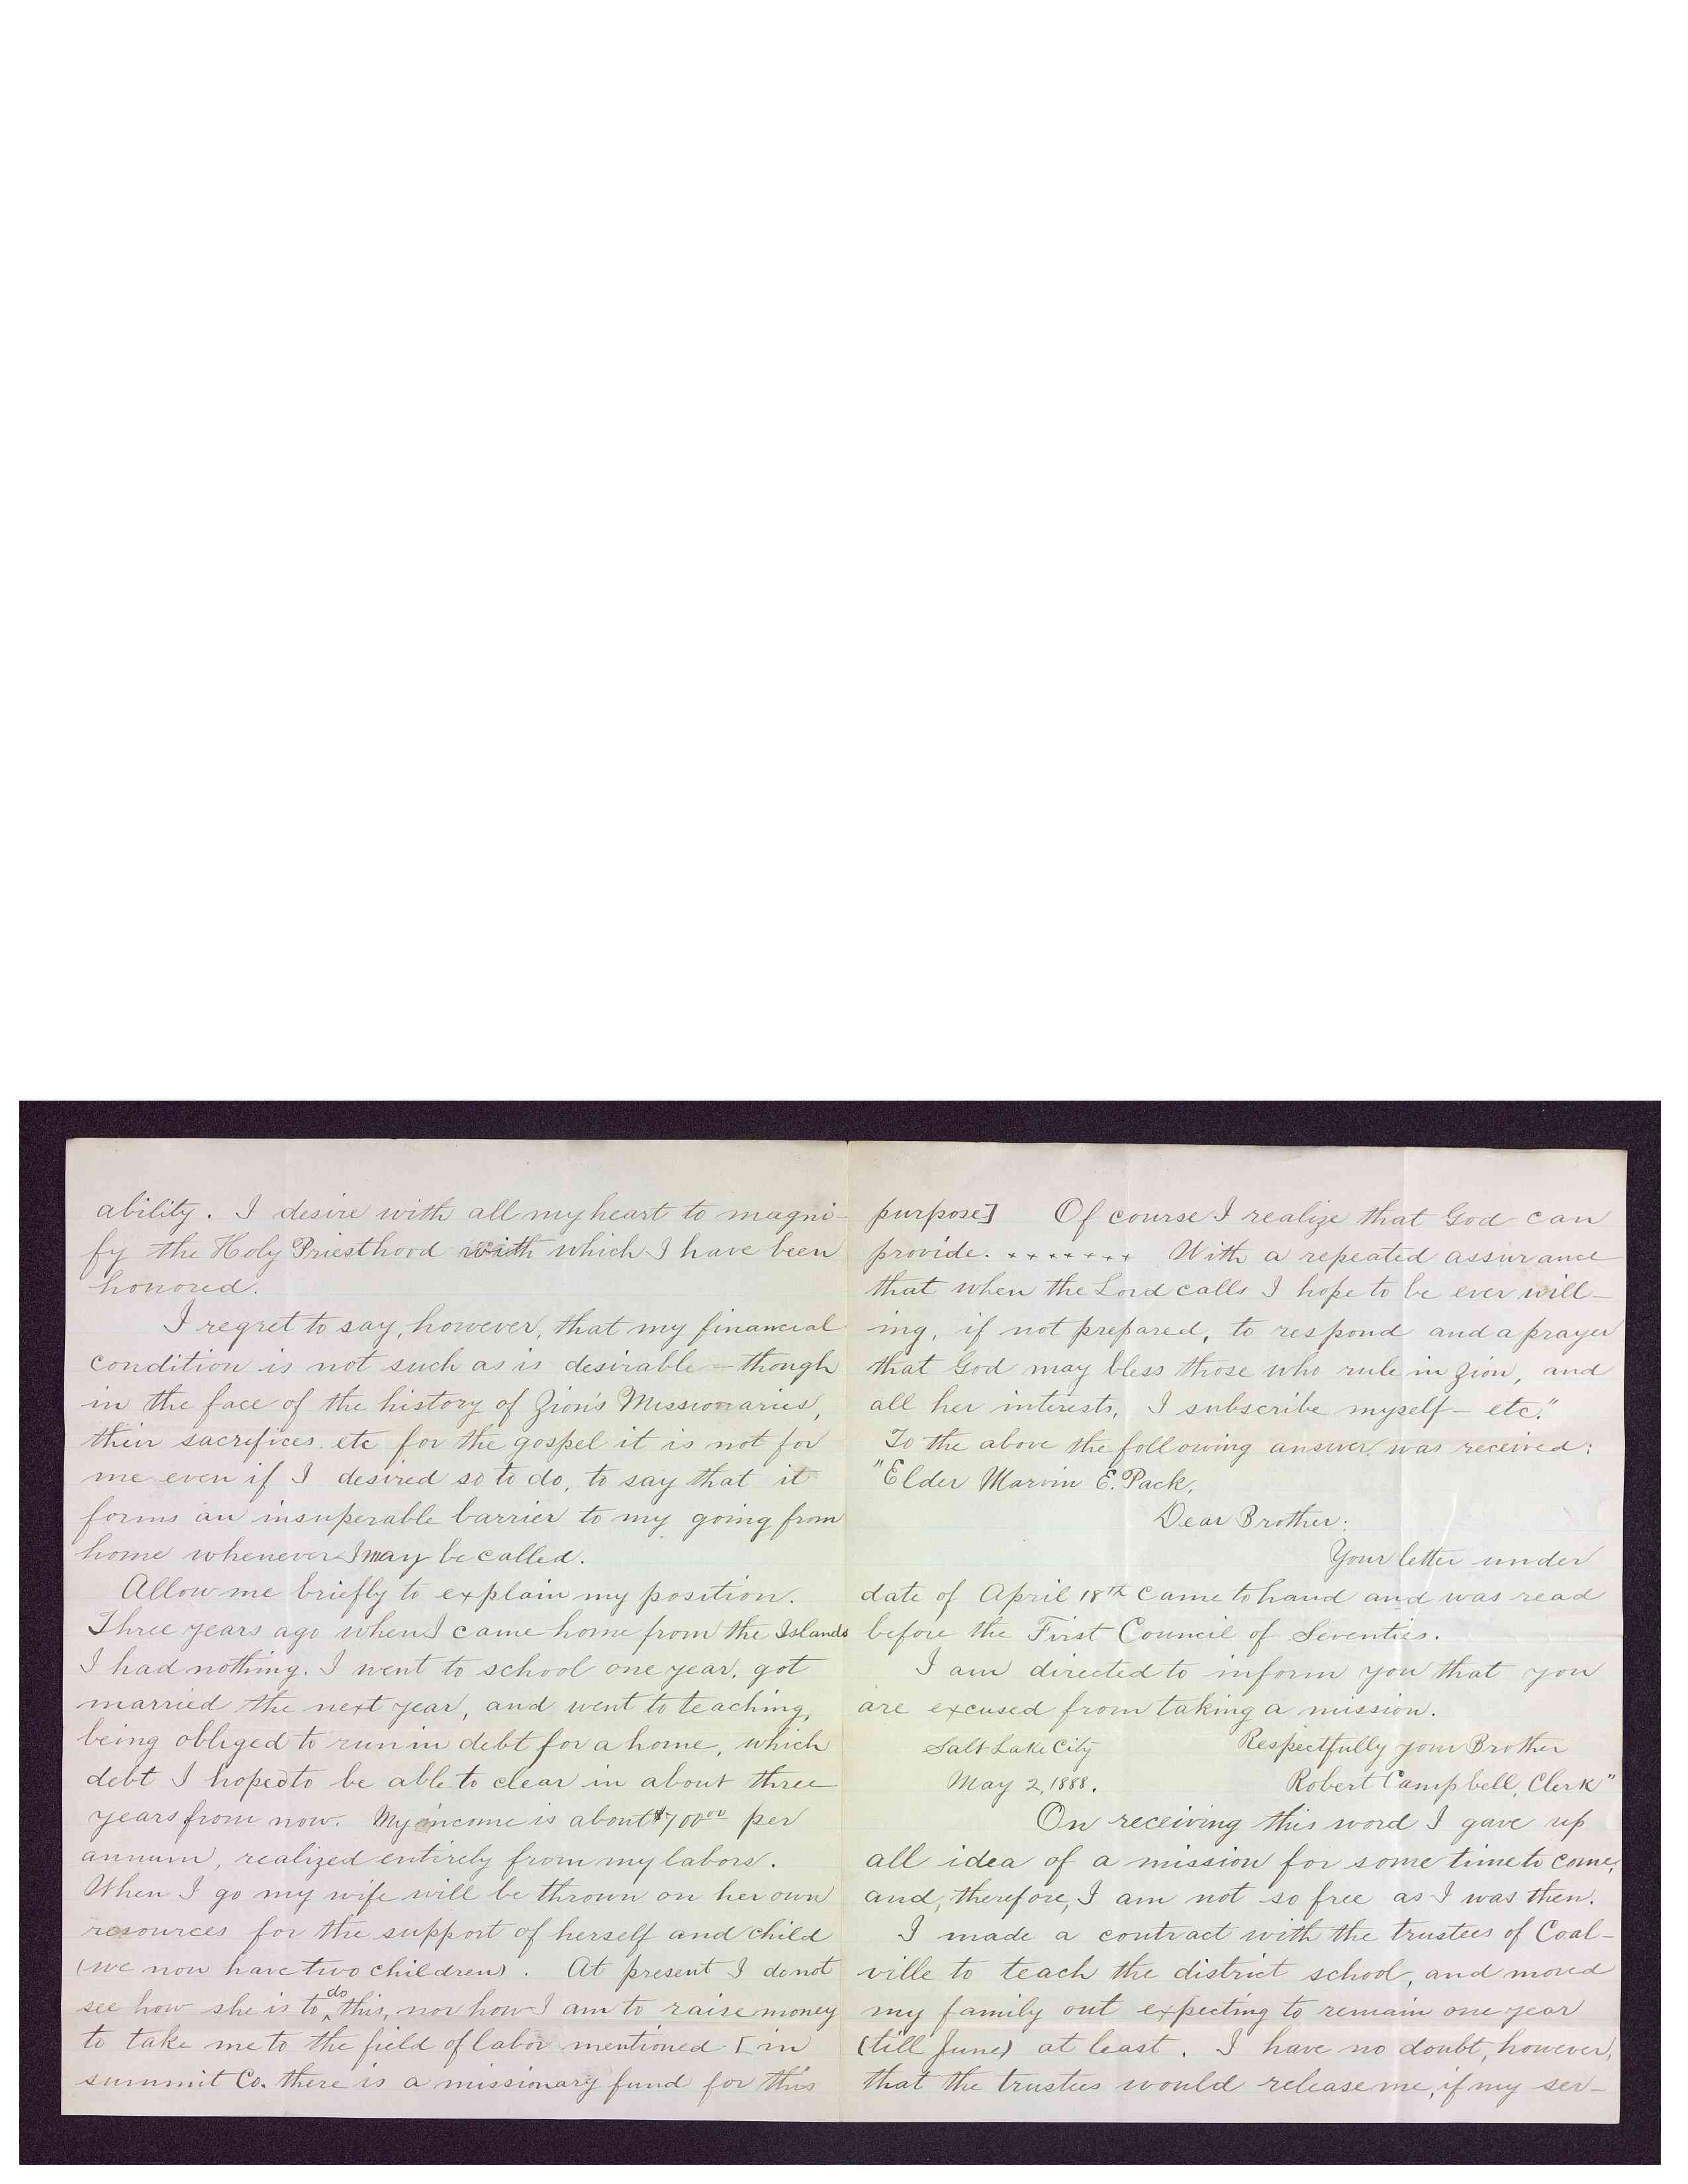 ability. I desire with all my heart to magni-
fy the Holy Priesthood with which I have been
honored.
I regret to say, however, that my financial
condition is not such as is desirable – though
in the face of the history of Zion's Missionaries,
their sacrifices etc for the gospel it is not for
me even if I desired so to do, to say that it
forms an insuperable barrier to my going from
home whenever I may be called.
Allow me briefly to explain my position.
Three years ago when I came home from the Islands
I had nothing. I went to school one year, got
married the next year, and went to teaching,
being obliged to run in debt for a home, which
debt I hoped to be able to clear in about three
years from now. My income is about $700⁰⁰ per
annum, realized entirely from my labors.
When I go my wife will be thrown on her own
resources for the support of herself and child
(we now have two children). At present I do not
see how she is to do this, nor how I am to raise money
to take me to the field of labor mentioned [in
summit Co. there is a missionary fund for this
purpose] Of course I realize that God can
provide. x x x x x x x With a repeated assurance
that when the Lord calls I hope to be ever will-
ing, if not prepared, to respond and a prayer
that God may bless those who rule in Zion, and
all her interests, I subscribe myself – etc."
To the above the following answer was received:
"Elder Marvin E. Pack,
Dear Brother:
Your letter under
date of April 18th came to hand and was read
before the First Council of Seventies.
I am directed to inform you that you
are excused from taking a mission.
Salt Lake City Respectfully your Brother
May 2, 1888. Robert Campbell, Clerk"
On receiving this word I gave up
all idea of a mission for some time to come,
and, therefore, I am not so free as I was then.
I made a contract with the trustees of Coal-
ville to teach the district school, and moved
my family out expecting to remain one year
(till June) at least. I have no doubt, however,
that the trustees would release me, if my ser-